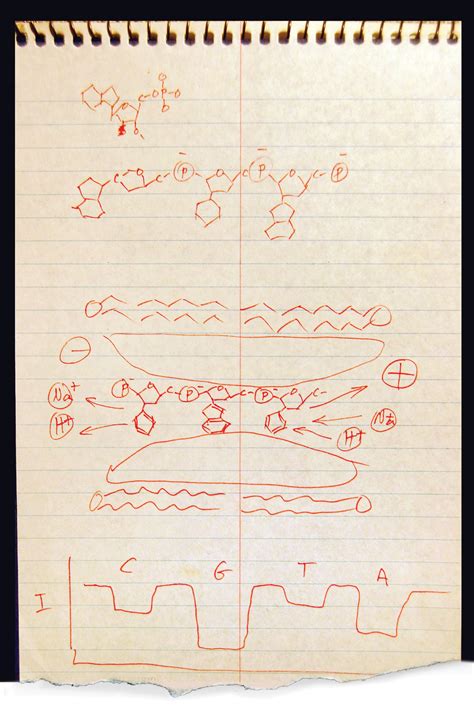 O
C-O-P-O
O O
O
- - -
C O C- P O C- P O C- P
- +
Na+ P O C- P - O C- P - O C-
Na+
H+ H+
C G T A
I